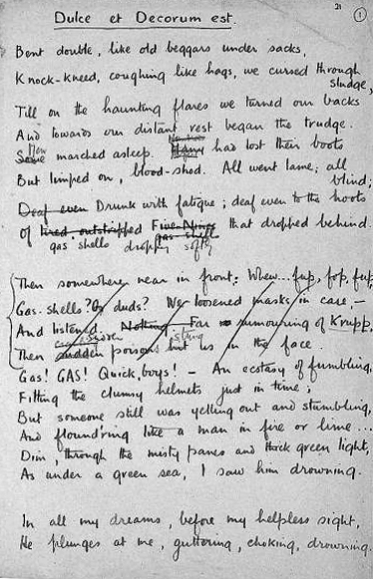 21
1
Dulce et Decorum est.
Bent double, like old beggars under sacks,
Knock-kneed, coughing like hags, we cursed through
sludge,
Till on the haunting flares we turned our backs
And towards our distant rest began the trudge.
Men
Some marched asleep. Many had lost their boots
But limped on, blood-shod. All went lame; all
blind;
Deaf even Drunk with fatigue; deaf even to the hoots
of tired outstripped Five-Nines that dropped behind.
gas shells dropping softly
gas-shells
Then somewhere near in front: Whew... fup, fop, fup,
Gas-shells? Or duds? We loosened masks in case, —
And listened. Nothing. Far rumouring of Krupp,
sudden
stung
Then sudden poisons hit us in the face.
Gas! GAS! Quick, boys! — An ecstasy of fumbling,
Fitting the clumsy helmets just in time;
But someone still was yelling out and stumbling,
And flound'ring like a man in fire or lime...
Dim, through the misty panes and thick green light,
As under a green sea, I saw him drowning.
In all my dreams, before my helpless sight,
He plunges at me, guttering, choking, drowning.